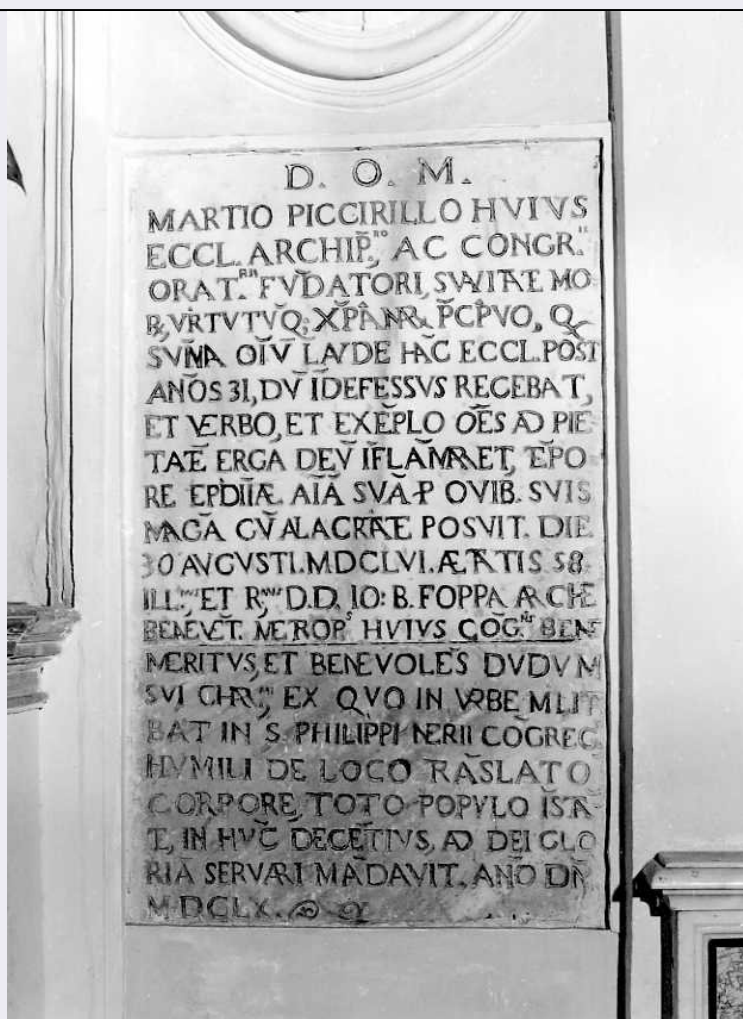 D. O. M.
MARTIO PICCIRILLO HVIVS
ECCL. ARCHIP̃.RO, AC CONGR.IS
ORAT.RII FṼDATORI, SVAVITATE MO
R&, VIRTVTVQ; XP̃IANAR& P̃CIPVO, QVI
SVM̃A OĨV̄ LAVDE HAC̃ ECCL. POST
AÑOS 31, DṼ ĨDEFESSVS REGEBAT,
ET VERBO, ET EXẼPLO OẼS AD PIE
TATẼ ERGA DEṼ ĨFLAM̃ARET, TẼPO
RE EPID̃IIÆ AĨÃ SVÃ P OVIB. SVIS
MAGÃ CṼ ALACRITATE POSVIT. DIE
30 AVGVSTI. MDCLVI. ÆTATIS 58
ILL.MVS, ET R.MVS D.D. IO: B. FOPPA ARCHIE
BENEVẼT. METROP.S HVIVS COG̃.NIS BENE
MERITVS, ET BENEVOLẼS DVDVM
SVI CHAR.MI, EX QVO IN VRBE MILITA
BAT IN S. PHILIPPI NERII COG̃REG.
HVMILI DE LOCO TRÃSLATO
CORPORE, TOTO POPVLO ĨSTÃ
TE, IN HVC̃ DECẼTIVS, AD DEI GLO
RIÃ SERVARI MÃDAVIT. AÑO DÑI
MDCLX.